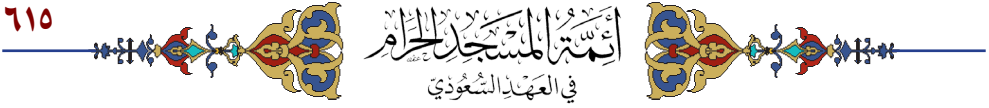 ٦١٥
أَئِمَّةُ المَسْجِدِ الحَرَامِ
فِي العَهْدِ السُّعُودِيِّ